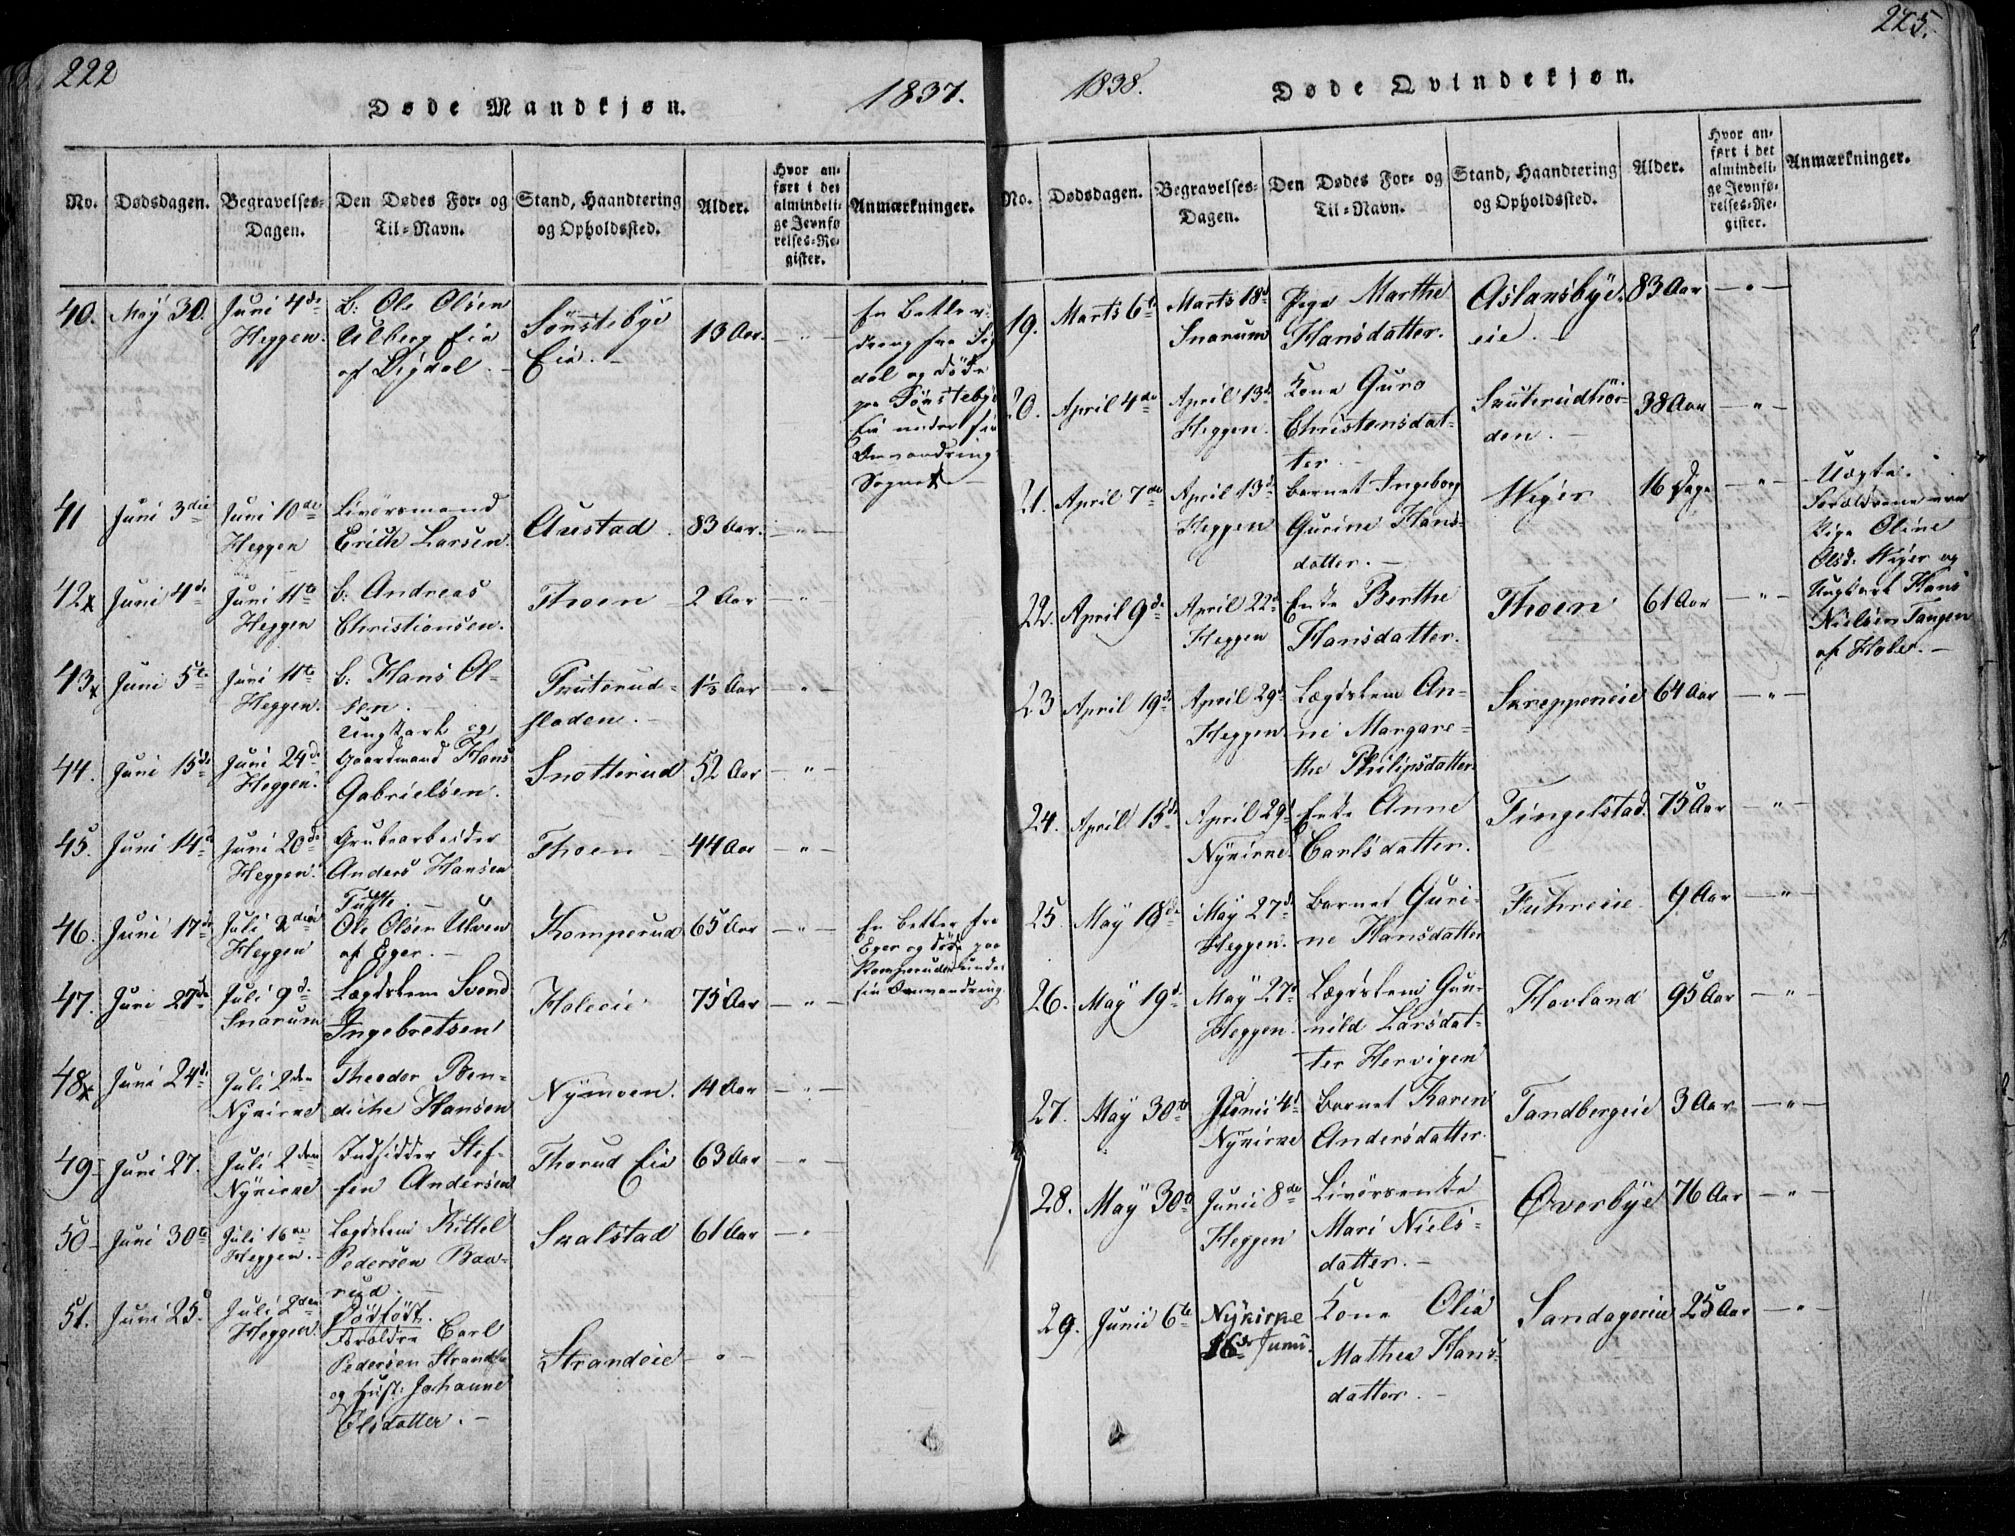 222
1837.
Døde Mandkjøn.
No.
Dødsdagen.
Begravelses-
Dagen.
Den Dødes For- og
Til-Navn.
Stand, Haandtering
og Opholdssted.
Alder.
Hvor an-
ført i det
almindeli-
ge Jevnfø-
relses-Re-
gister.
Anmærkninger.
40. May 30. Juni 4de
Heggen.
b: Ole Olsen
Ulberg Eie
af Sigdal.
Sønstebye
Eie.
13 Aar.
En Betler-
dreng fra Sig
dal og døde
paa Sønstebye
Eie under sin
Omvandring i
Sognet
41 Juni 3die Juni 10de
Heggen
Livørsmand
Erich Larsen.
Austad. 83 Aar.
42 Juni 4de Juni 11te
Heggen
b: Andreas
Christiansen.
Thoen 2 Aar
43 Juni 5te Juni 11te
Heggen.
b: Hans Ol-
sen.
Snuterud-
fladen.
1½ Aar
44. Juni 15de Juni 24de
Heggen.
Ungkarl og
Gaardmand Hans
Gabrielsen.
Snotterud 52 Aar
45. Juni 14d Juni 20de
Heggen.
Grubearbeider
Anders Hansen
Tufte.
Thoen 44 Aar
46. Juni 17de Juli 2den
Heggen
Ole Olsen Ulven
af Eger.
Komperud 65 Aar
En Betler fra
Eger og døde paa
Komperud under
sin Omvandring.
47. Juni 27de Juli 9de
Snarum
Lægdslem Svend
Ingebretsen
Holeeie 75 Aar
48 Juni 24de Juli 2den
Nykirke
Theodor Ben-
diche Hansen
Nymoen. 14 Aar
49 Juni 27. Juli 2den
Nykirke
Indsidder Stef-
fen Andersen
Thorud Eie 63 Aar
50 Juni 30te Juli 16de
Heggen.
Lægdslem Kittel
Pedersen Baa-
rud.
Skalstad 61 Aar
51. Juni 25d Juli 2den
Heggen
Dødfødt.
Forældre Carl
Pedersen Strand
og Hust: Johanne
Olsdatter.
Strandeie
225.
1838.
Døde Qvindekjøn.
No.
Dødsdagen.
Begravelses-
Dagen.
Den Dødes For- og
Til-Navn.
Stand, Haandtering
og Opholdssted.
Alder.
Hvor an-
ført i det
almindeli-
ge Jevnfø-
relses-Re-
gister.
Anmærkninger.
19. Marts 6te Marts 18d
Snarum
Pige Marthe
Hansdatter.
Aslansbye
eie.
83 Aar
20. April 4de April 13d
Heggen.
Kone Guro
Christensdat-
ter.
Snuterudtiør-
den.
38 Aar
21. April 7de April 13d
Heggen
Barnet Ingeborg
Gurine Hans-
datter.
Weger 16 Dage
Uægte.
Forældrene ere
Pige Oline
Olsd: Weger og
Ungkarl Hans
Nielsen Tangen
af Hole.
22. April 9de April 22d
Heggen
Enke Berthe
Hansdatter.
Thoen 61 Aar
23 April 19d April 29d
Heggen
Lægdslem An-
ne Margare-
the Philipsdatter
Skreppeneie 64 Aar
24. April 15de April 29d
Nykirke.
Enke Anne
Carlsdatter.
Tingelstad. 75 Aar
25. May 18de May 27de
Heggen.
Barnet Guri-
ne Hansdatter
Fuhreeie 9 Aar
26. May 19d May 27d
Heggen.
Lægdslem Gun-
nild Larsdat-
ter Hervigen
Hovland 95 Aar
27. May 30te Junii 4d
Nykirke
Barnet Karen
Andersdatter.
Tandbergeie 3 Aar
28. May 30te Junii 8de
Heggen
Livørsenke
Mari Niels-
datter.
Øverbye 76 Aar
29. Junii 6te Nykirke
16de Junii.
Kone Olia
Mathea Hans-
datter.
Sandagereie 25 Aar